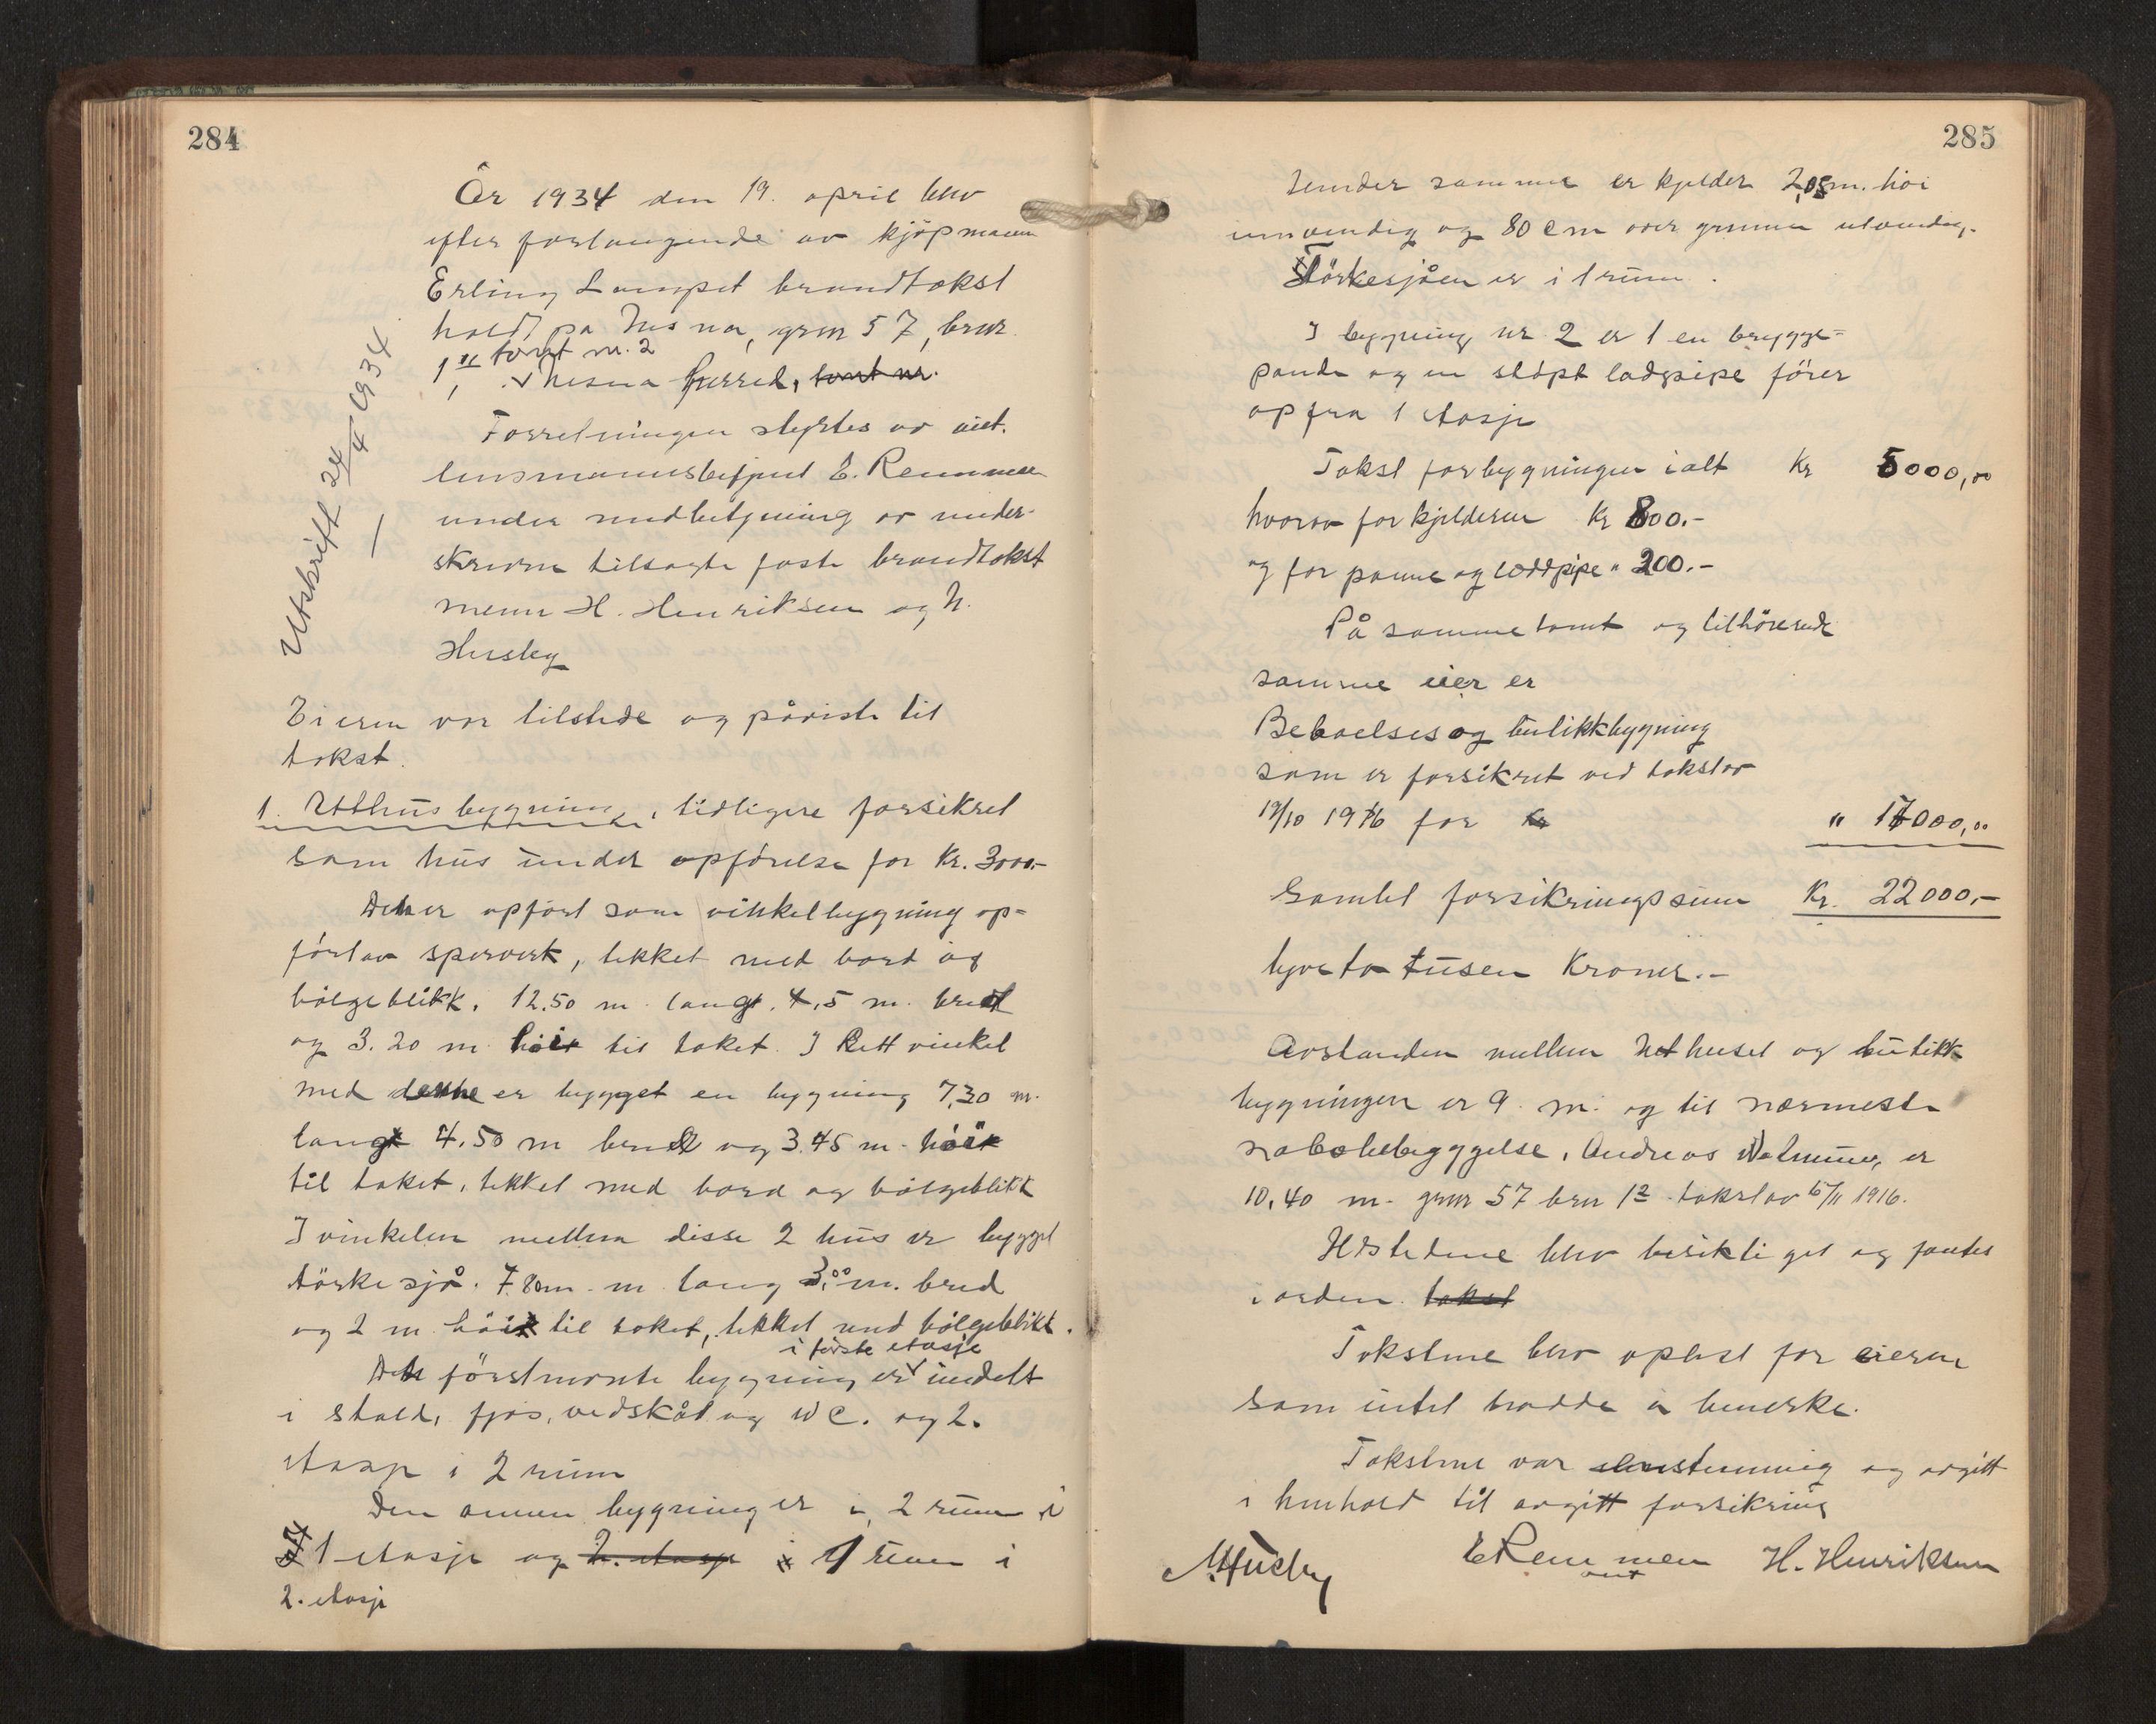 284
År 1934 den 19. april blev
efter forlangende av kjöpmann
Erling Langset brandtakst
holdt på Nesna, grnr 57, brnr.
1 11 tomt nr. 2
, Nesna herred, tomt nr.
Forretningen styrtes av aut.
lensmannsbetjent E. Remmen
under medbetjening av under-
skrevne tilsagte faste brandtakst
menn H. Henriksen og N.
Husby
Utskrift 24/4 1934
Eieren var tilstede og påviste til
takst.
1. Uthusbygning, tidligere forsikret
som hus under opförelse for Kr. 3000.-
Den er opfört som vinkelbygning op-
fört av sperverk, tekket med bord og
bölgeblikk. 12.50 m. lang, 4,5 m. bred
og 3.20 m höi til taket. I Rett vinkel
med denne er bygget en bygning 7,30 m.
lang 4.50 m bred og 3.45 m. höi
til taket, tekket med bord og bölgeblikk
I vinkelen mellem disse 2 hus er bygget
törkesjå. 7.80 m. lang 3,00 m. bred
og 2 m höi til taket, tekket med bölgeblikk.
i förste etasje
Den förstnevnte bygning er indelt
i stald, fjös, vedskål og WC. og 2.
etasje i 2 rum
Den annen bygning er i 2 rum i
1 etasje og 2. etasje i 1 rum i
2. etasje
285
Under samme er kjelder 2,05 m. höi
innvendig og 80 cm over grunnen utvendig.
Törkesjåen er i 1 rum.
I bygning nr 2 er 1 en brygge-
pande og en stöpt lodpipe förer
op fra 1 etasje
Takst for bygningen ialt Kr 5000,00
hvorav for kjelderen Kr 800.-
og for panne og loddpipe " 200.-
På samme tomt og tilhörende
samme eier er
Beboelses og butikkbygning
som er forsikret ved takst av
/10 1916 for Kr " 17000,00
Samlet forsikringssum Kr. 22000,-
tyveto tusen Kroner.-
Avstanden mellem Uthuset og butikk
bygningen er 9 m. og til nærmeste
nabobebyggelse, Andreas er
10,40 m. grnr 57 brn 12 takst av /11 1916.
Ildstedene blev besiktiget og fantes
i orden. takst
Takstene blev oplest for eieren
som intet hadde å bemerke.
Takstene var enstemmig og avgitt
i henhold til avgitt forsikring
N. Husby E Remmen H. Henriksen
aut